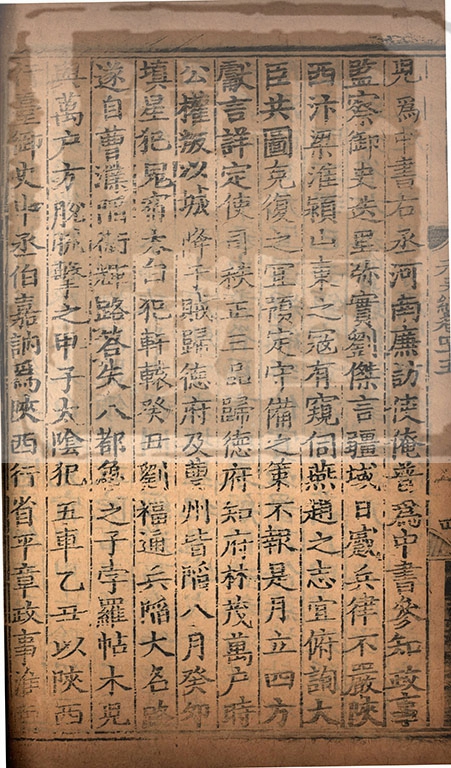 見爲中書右丞河南廉訪使俺普爲中書參知政事
監察御史迭里彌實劉傑言疆域日蹙兵律不嚴陝
西汴梁淮潁山東之寇有窺伺燕趙之志宜俯詢大
臣共圖克復之宜預定守備之策不報是月立四方
獻言詳定使司秩正三品歸德府知府林茂萬户時
公權叛以城降于賊歸德府及曹州皆陷八月癸卯
填星犯鬼宿太白犯軒轅癸丑劉福通兵陷大名路
遂自曹濮陷衛輝路答失八都魯之子孛羅帖木兒
與萬户方脫脫擊之甲子太陰犯五車乙丑以陝西
行臺御史中丞伯嘉訥爲陝西行省平章政事淮